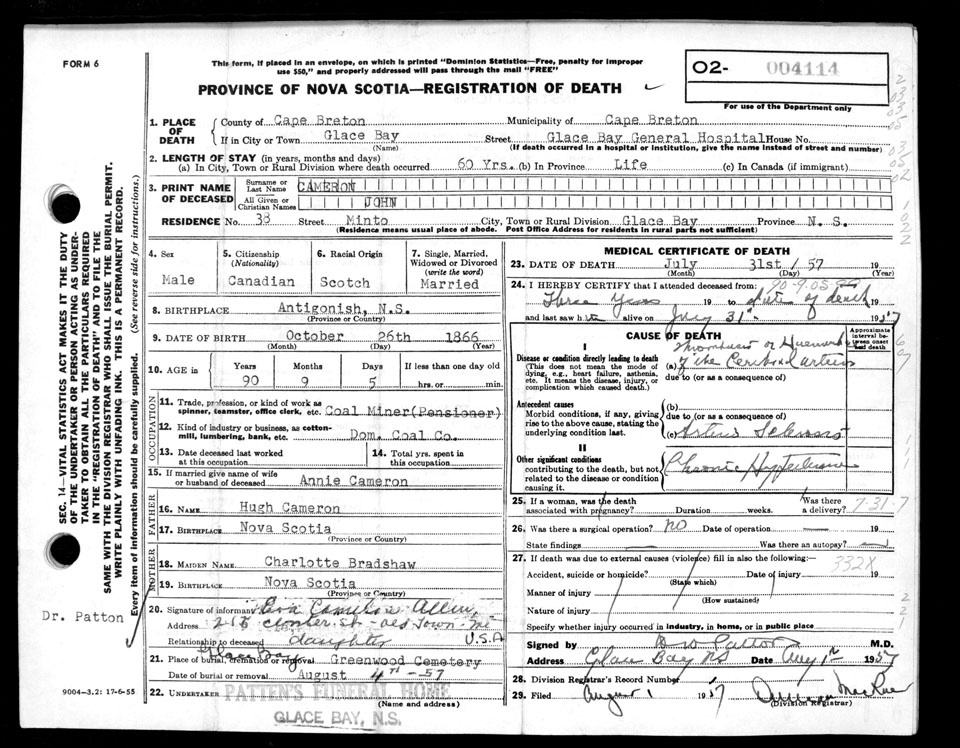 FORM 6
This form, if placed in an envelope, on which is printed "Dominion Statistics—Free, penalty for improper
use $50," and properly addressed will pass through the mail "FREE"
PROVINCE OF NOVA SCOTIA—REGISTRATION OF DEATH
O2- 004114
For use of the Department only
1. PLACE OF DEATH
County of Cape Breton Municipality of Cape Breton
If in City or Town Glace Bay Street Glace Bay General Hospital House No.
(Name) (If death occurred in a hospital or institution, give the name instead of street and number)
2. LENGTH OF STAY (in years, months and days)
(a) In City, Town or Rural Division where death occurred 60 Yrs. (b) In Province Life (c) In Canada (if immigrant)
3. PRINT NAME OF DECEASED
Surname or Last Name CAMERON
All Given or Christian Names JOHN
RESIDENCE No. 38 Street Minto City, Town or Rural Division Glace Bay Province N. S.
(Residence means usual place of abode. Post Office Address for residents in rural parts not sufficient)
4. Sex
Male
5. Citizenship
(Nationality)
Canadian
6. Racial Origin
Scotch
7. Single, Married,
Widowed or Divorced
(write the word)
Married
8. BIRTHPLACE Antigonish, N.S.
(Province or Country)
9. DATE OF BIRTH October 26th 1866
(Month) (Day) (Year)
10. AGE in
Years Months Days If less than one day old
90 9 5 hrs. or min.
OCCUPATION
11. Trade, profession, or kind of work as
spinner, teamster, office clerk, etc. Coal Miner (Pensioner)
12. Kind of industry or business, as cotton-
mill, lumbering, bank, etc. Dom. Coal Co.
13. Date deceased last worked
at this occupation
14. Total yrs. spent in
this occupation
15. If married give name of wife
or husband of deceased Annie Cameron
FATHER
16. NAME Hugh Cameron
17. BIRTHPLACE Nova Scotia
(Province or Country)
MOTHER
18. MAIDEN NAME Charlotte Bradshaw
19. BIRTHPLACE Nova Scotia
(Province or Country)
20. Signature of informant Eva Cameron Allen
Address St - Old Town - Me
Relationship to deceased daughter U.S.A
21. Place of burial, cremation or removal Glace Bay Greenwood Cemetery
Date of burial or removal August 4th - 57
22. UNDERTAKER PATTEN'S FUNERAL HOME
(Name and address)
GLACE BAY, N.S.
MEDICAL CERTIFICATE OF DEATH
23. DATE OF DEATH July 31st / 57 19
(Month) (Day) (Year)
24. I HEREBY CERTIFY that I attended deceased from:
Three Years 19 to date of death 19
and last saw him alive on July 31st 1957
CAUSE OF DEATH
Approximate interval between onset and death
I
Disease or condition directly leading to death
(This does not mean the mode of
dying, e.g., heart failure, asthenia,
etc. It means the disease, injury, or
complication which caused death.)
(a) of the Cerebral arteries
due to (or as a consequence of)
Antecedent causes
Morbid conditions, if any, giving
rise to the above cause, stating the
underlying condition last.
(b)
due to (or as a consequence of)
(c) Arterio Sclerosis
II
Other significant conditions
contributing to the death, but not
related to the disease or condition
causing it.
Chronic
25. If a woman, was the death
associated with pregnancy? Duration weeks. Was there
a delivery?
7-31-7
26. Was there a surgical operation? NO Date of operation 19
State findings Was there an autopsy?
27. If death was due to external causes (violence) fill in also the following:
332X
Accident, suicide or homicide? Date of injury 19
(State which)
Manner of injury
(How sustained)
Nature of injury
Specify whether injury occurred in industry, in home, or in public place
Signed by Patton M.D.
Address Glace Bay NS Date Aug 1st 1957
28. Division Registrar's Record Number
29. Filed August 1 1957 MacRae
(Division Registrar)
SEC. 14—VITAL STATISTICS ACT MAKES IT THE DUTY
OF THE UNDERTAKER OR PERSON ACTING AS UNDER-
TAKER TO OBTAIN ALL THE PARTICULARS REQUIRED
IN THE "REGISTRATION OF DEATH" AND TO FILE THE
SAME WITH THE DIVISION REGISTRAR WHO SHALL ISSUE THE BURIAL PERMIT.
WRITE PLAINLY WITH UNFADING INK. THIS IS A PERMANENT RECORD.
Every item of information should be carefully supplied. (See reverse side for instructions.)
Dr. Patton
9004-3.2: 17-6-55